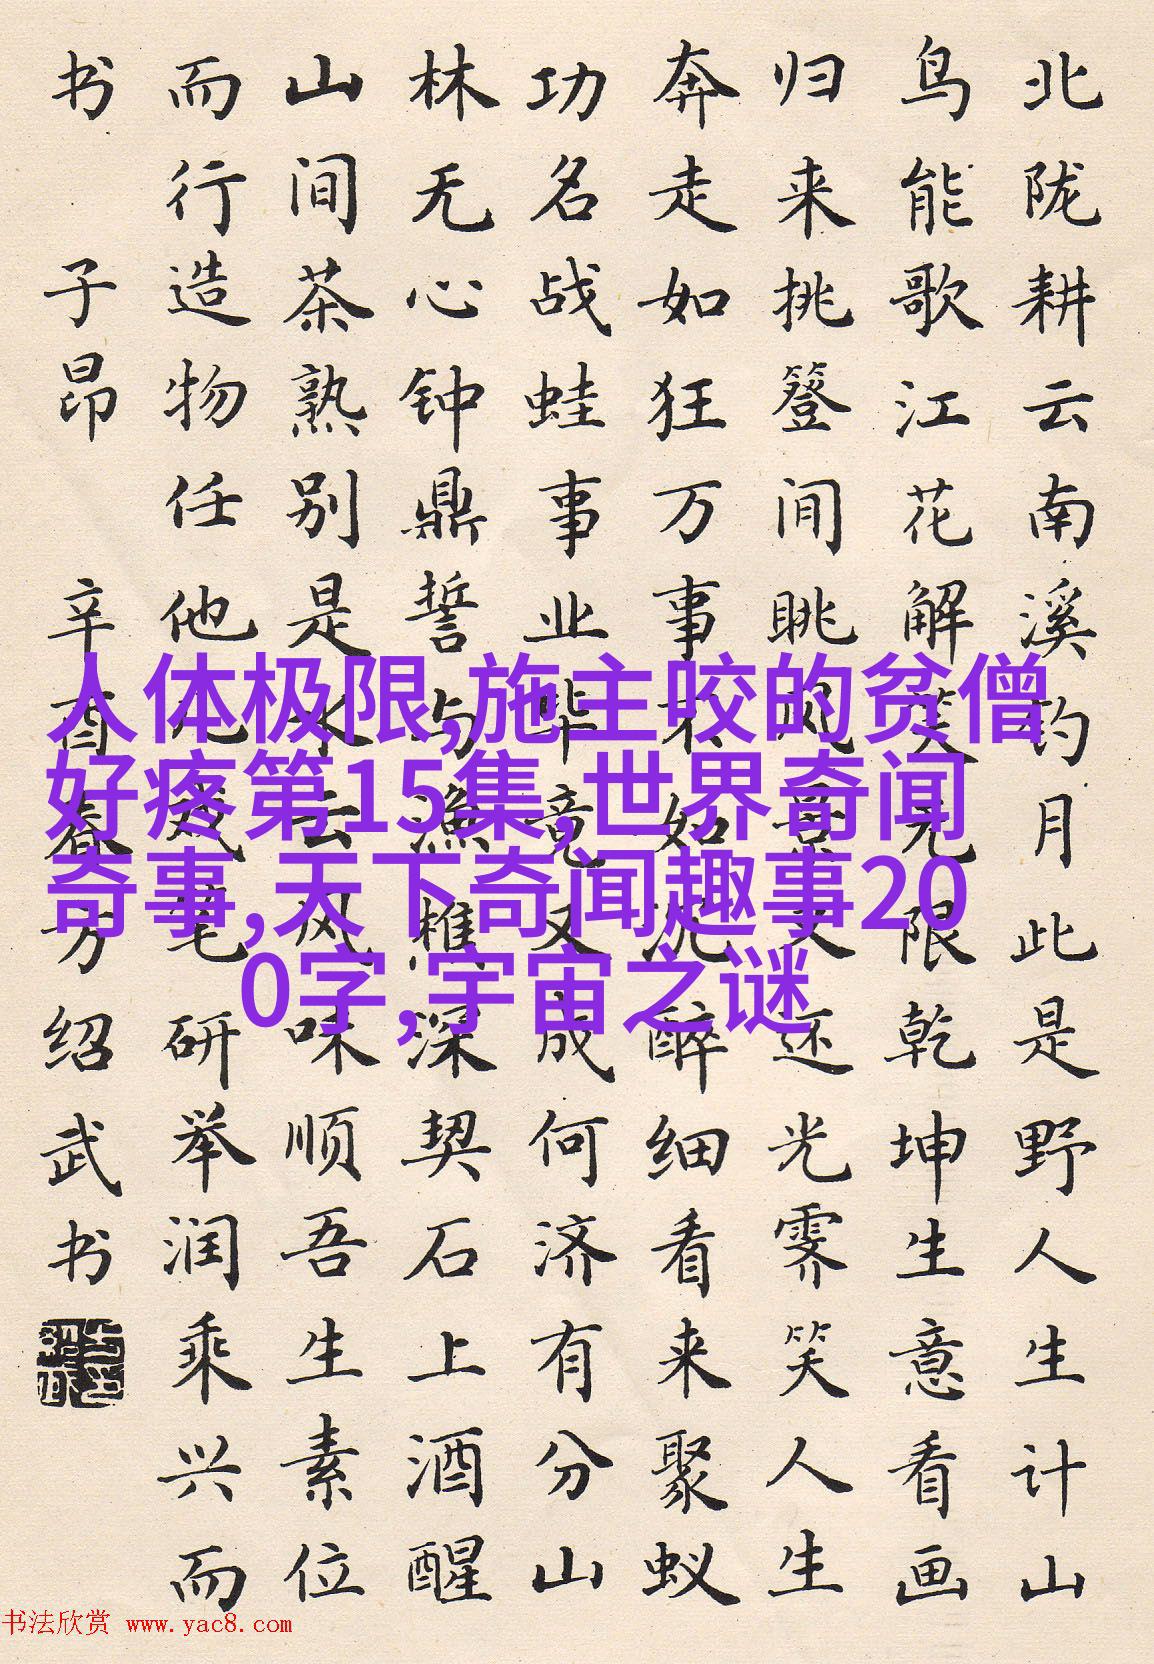 北陇耕云南溪钓月此是野人生计山
鸟能歌江花解笑无限乾坤生意看画
归来挑簦间眺风景又还光霁笑人生
奔走如狂万事不如沉醉细看来聚蚁
功名战蛙事业毕竟又成何济有分山
林无心钟鼎誓与渔樵深契石上酒醒
山间茶熟别是水云风味顺吾生素位
而行造物任他儿戏笔研举润乘兴而
书 子昂 辛酉春方绍武书
人体极限,施主咬的贫僧
好疼第15集,世界奇闻
奇事,天下奇闻趣事20
0字,宇宙之谜
书法欣赏 www.yac8.com